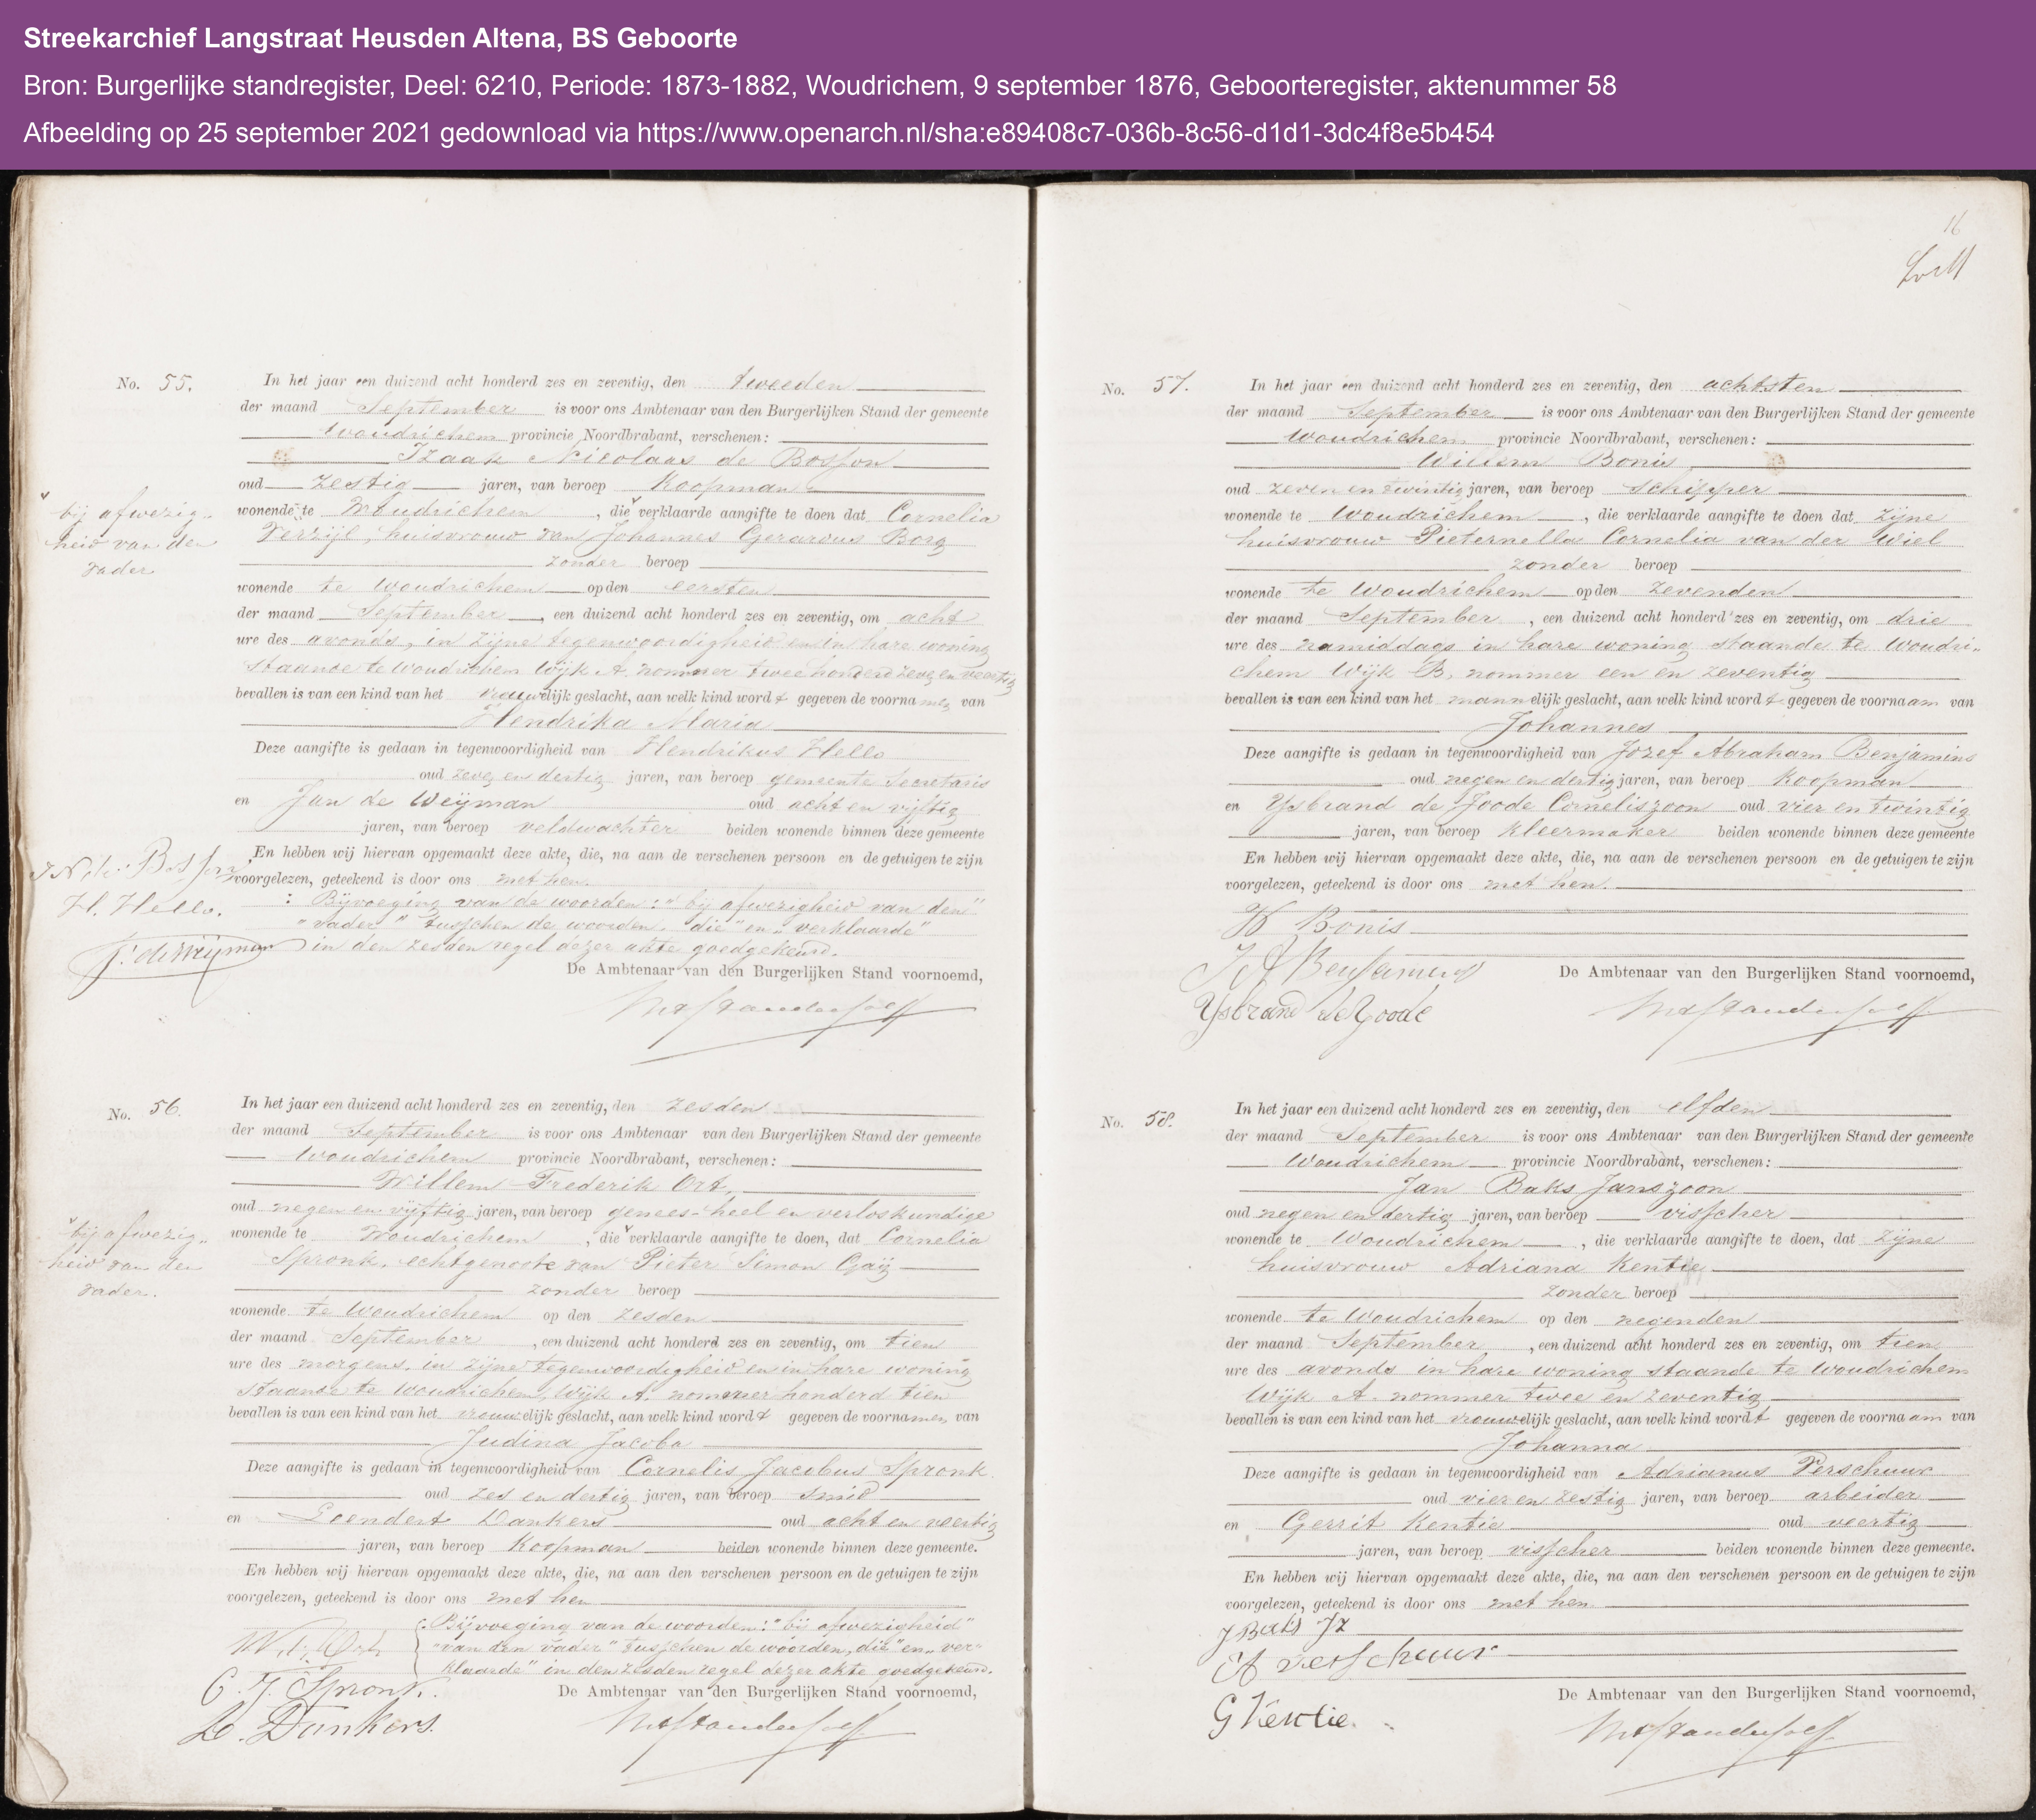 Streekarchief Langstraat Heusden Altena, BS Geboorte
Bron: Burgerlijke standregister, Deel: 6210, Periode: 1873-1882, Woudrichem, 9 september 1876, Geboorteregister, aktenummer 58
Afbeelding op 25 september 2021 gedownload via https://www.openarch.nl/sha:e89408c7-036b-8c56-d1d1-3dc4f8e5b454
No. 55.
In het jaar een duizend acht honderd zes en zeventig, den tweeden
der maand September is voor ons Ambtenaar van den Burgerlijken Stand der gemeente
Woudrichem provincie Noordbrabant, verschenen:
Izaak Nicolaas de Bosson
oud zestig jaren, van beroep Koopman
wonende te Woudrichem, die verklaarde aangifte te doen dat Cornelia
Verzijl, huisvrouw van Johannes Gerardus Borg
zonder beroep
wonende te Woudrichem op den eersten
der maand September, een duizend acht honderd zes en zeventig, om acht
ure des avonds, in zijne tegenwoordigheid en in hare woning
staande te Woudrichem Wijk A. nommer twee honderd zeven en veertig
bevallen is van een kind van het vrouwelijk geslacht, aan welk kind wordt gegeven de voornamen van
Hendrika Maria
Deze aangifte is gedaan in tegenwoordigheid van Hendrikus Hello
oud zeven en dertig jaren, van beroep gemeente Secretaris
en Jan de Weijman oud acht en vijftig
jaren, van beroep veldwachter beiden wonende binnen deze gemeente
En hebben wij hiervan opgemaakt deze akte, die, na aan de verschenen persoon en de getuigen te zijn
voorgelezen, geteekend is door ons met hen.
: Bijvoeging van de woorden: "bij afwezigheid van den"
"vader" tusschen de woorden "die" en "verklaarde"
in den zesden regel dezer akte goedgekeurd.
De Ambtenaar van den Burgerlijken Stand voornoemd,
bij afwezig-
heid van den
vader
I N de Bosson
H. Hello.
J. de Weijman
No. 56.
In het jaar een duizend acht honderd zes en zeventig, den zesden
der maand September is voor ons Ambtenaar van den Burgerlijken Stand der gemeente
Woudrichem provincie Noordbrabant, verschenen:
Willem Frederik Ort,
oud negen en vijftig jaren, van beroep genees- heel en verloskundige
wonende te Woudrichem, die verklaarde aangifte te doen, dat Cornelia
Spronk, echtgenoote van Pieter Simon
zonder beroep
wonende te Woudrichem op den zesden
der maand September, een duizend acht honderd zes en zeventig, om tien
ure des morgens, in zijne tegenwoordigheid en in hare woning
staande te Woudrichem, Wijk A. nommer honderd tien
bevallen is van een kind van het vrouwelijk geslacht, aan welk kind wordt gegeven de voornamen van
Judina Jacoba
Deze aangifte is gedaan in tegenwoordigheid van Cornelis Jacobus Spronk
oud zes en dertig jaren, van beroep smid
en Leendert Dankers oud acht en veertig
jaren, van beroep Koopman beiden wonende binnen deze gemeente.
En hebben wij hiervan opgemaakt deze akte, die, na aan den verschenen persoon en de getuigen te zijn
voorgelezen, geteekend is door ons met hen
Bijvoeging van de woorden: "bij afwezigheid"
"van den vader" tusschen de woorden "die" en "ver-
klaarde" in den zesden regel dezer akte goedgekeurd.
De Ambtenaar van den Burgerlijken Stand voornoemd,
bij afwezig-
heid van den
vader.
C. J. Spronk.
L. Dankers.
16
No. 57.
In het jaar een duizend acht honderd zes en zeventig, den achtsten
der maand September is voor ons Ambtenaar van den Burgerlijken Stand der gemeente
Woudrichem provincie Noordbrabant, verschenen:
Willem Bonis
oud zeven en twintig jaren, van beroep schipper
wonende te Woudrichem, die verklaarde aangifte te doen dat zijne
huisvrouw Pieternella Cornelia van der Wiel
zonder beroep
wonende te Woudrichem op den zevenden
der maand September, een duizend acht honderd zes en zeventig, om drie
ure des namiddags in hare woning staande te Woudri-
chem Wijk B. nommer een en zeventig
bevallen is van een kind van het mannelijk geslacht, aan welk kind wordt gegeven de voornaam van
Johannes
Deze aangifte is gedaan in tegenwoordigheid van Jozef Abraham Benjamins
oud negen en dertig jaren, van beroep Koopman
en Ysbrand de Joode Corneliszoon oud vier en twintig
jaren, van beroep kleermaker beiden wonende binnen deze gemeente
En hebben wij hiervan opgemaakt deze akte, die, na aan de verschenen persoon en de getuigen te zijn
voorgelezen, geteekend is door ons met hen.
W Bonis
J A Benjamins
Ysbrand de Joode
De Ambtenaar van den Burgerlijken Stand voornoemd,
No. 58.
In het jaar een duizend acht honderd zes en zeventig, den elfden
der maand September is voor ons Ambtenaar van den Burgerlijken Stand der gemeente
Woudrichem provincie Noordbrabant, verschenen:
Jan Baks Janszoon
oud negen en dertig jaren, van beroep visscher
wonende te Woudrichem, die verklaarde aangifte te doen, dat zijne
huisvrouw Adriana Kentie
zonder beroep
wonende te Woudrichem op den negenden
der maand September, een duizend acht honderd zes en zeventig, om tien
ure des avonds in hare woning staande te Woudrichem
Wijk A. nommer twee en zeventig
bevallen is van een kind van het vrouwelijk geslacht, aan welk kind wordt gegeven de voornaam van
Johanna
Deze aangifte is gedaan in tegenwoordigheid van Adrianus Verschuur
oud vier en zestig jaren, van beroep arbeider
en Gerrit Kentie oud veertig
jaren, van beroep visscher beiden wonende binnen deze gemeente.
En hebben wij hiervan opgemaakt deze akte, die, na aan den verschenen persoon en de getuigen te zijn
voorgelezen, geteekend is door ons met hen.
J Baks Jz
A verschuur
G Kentie.
De Ambtenaar van den Burgerlijken Stand voornoemd,